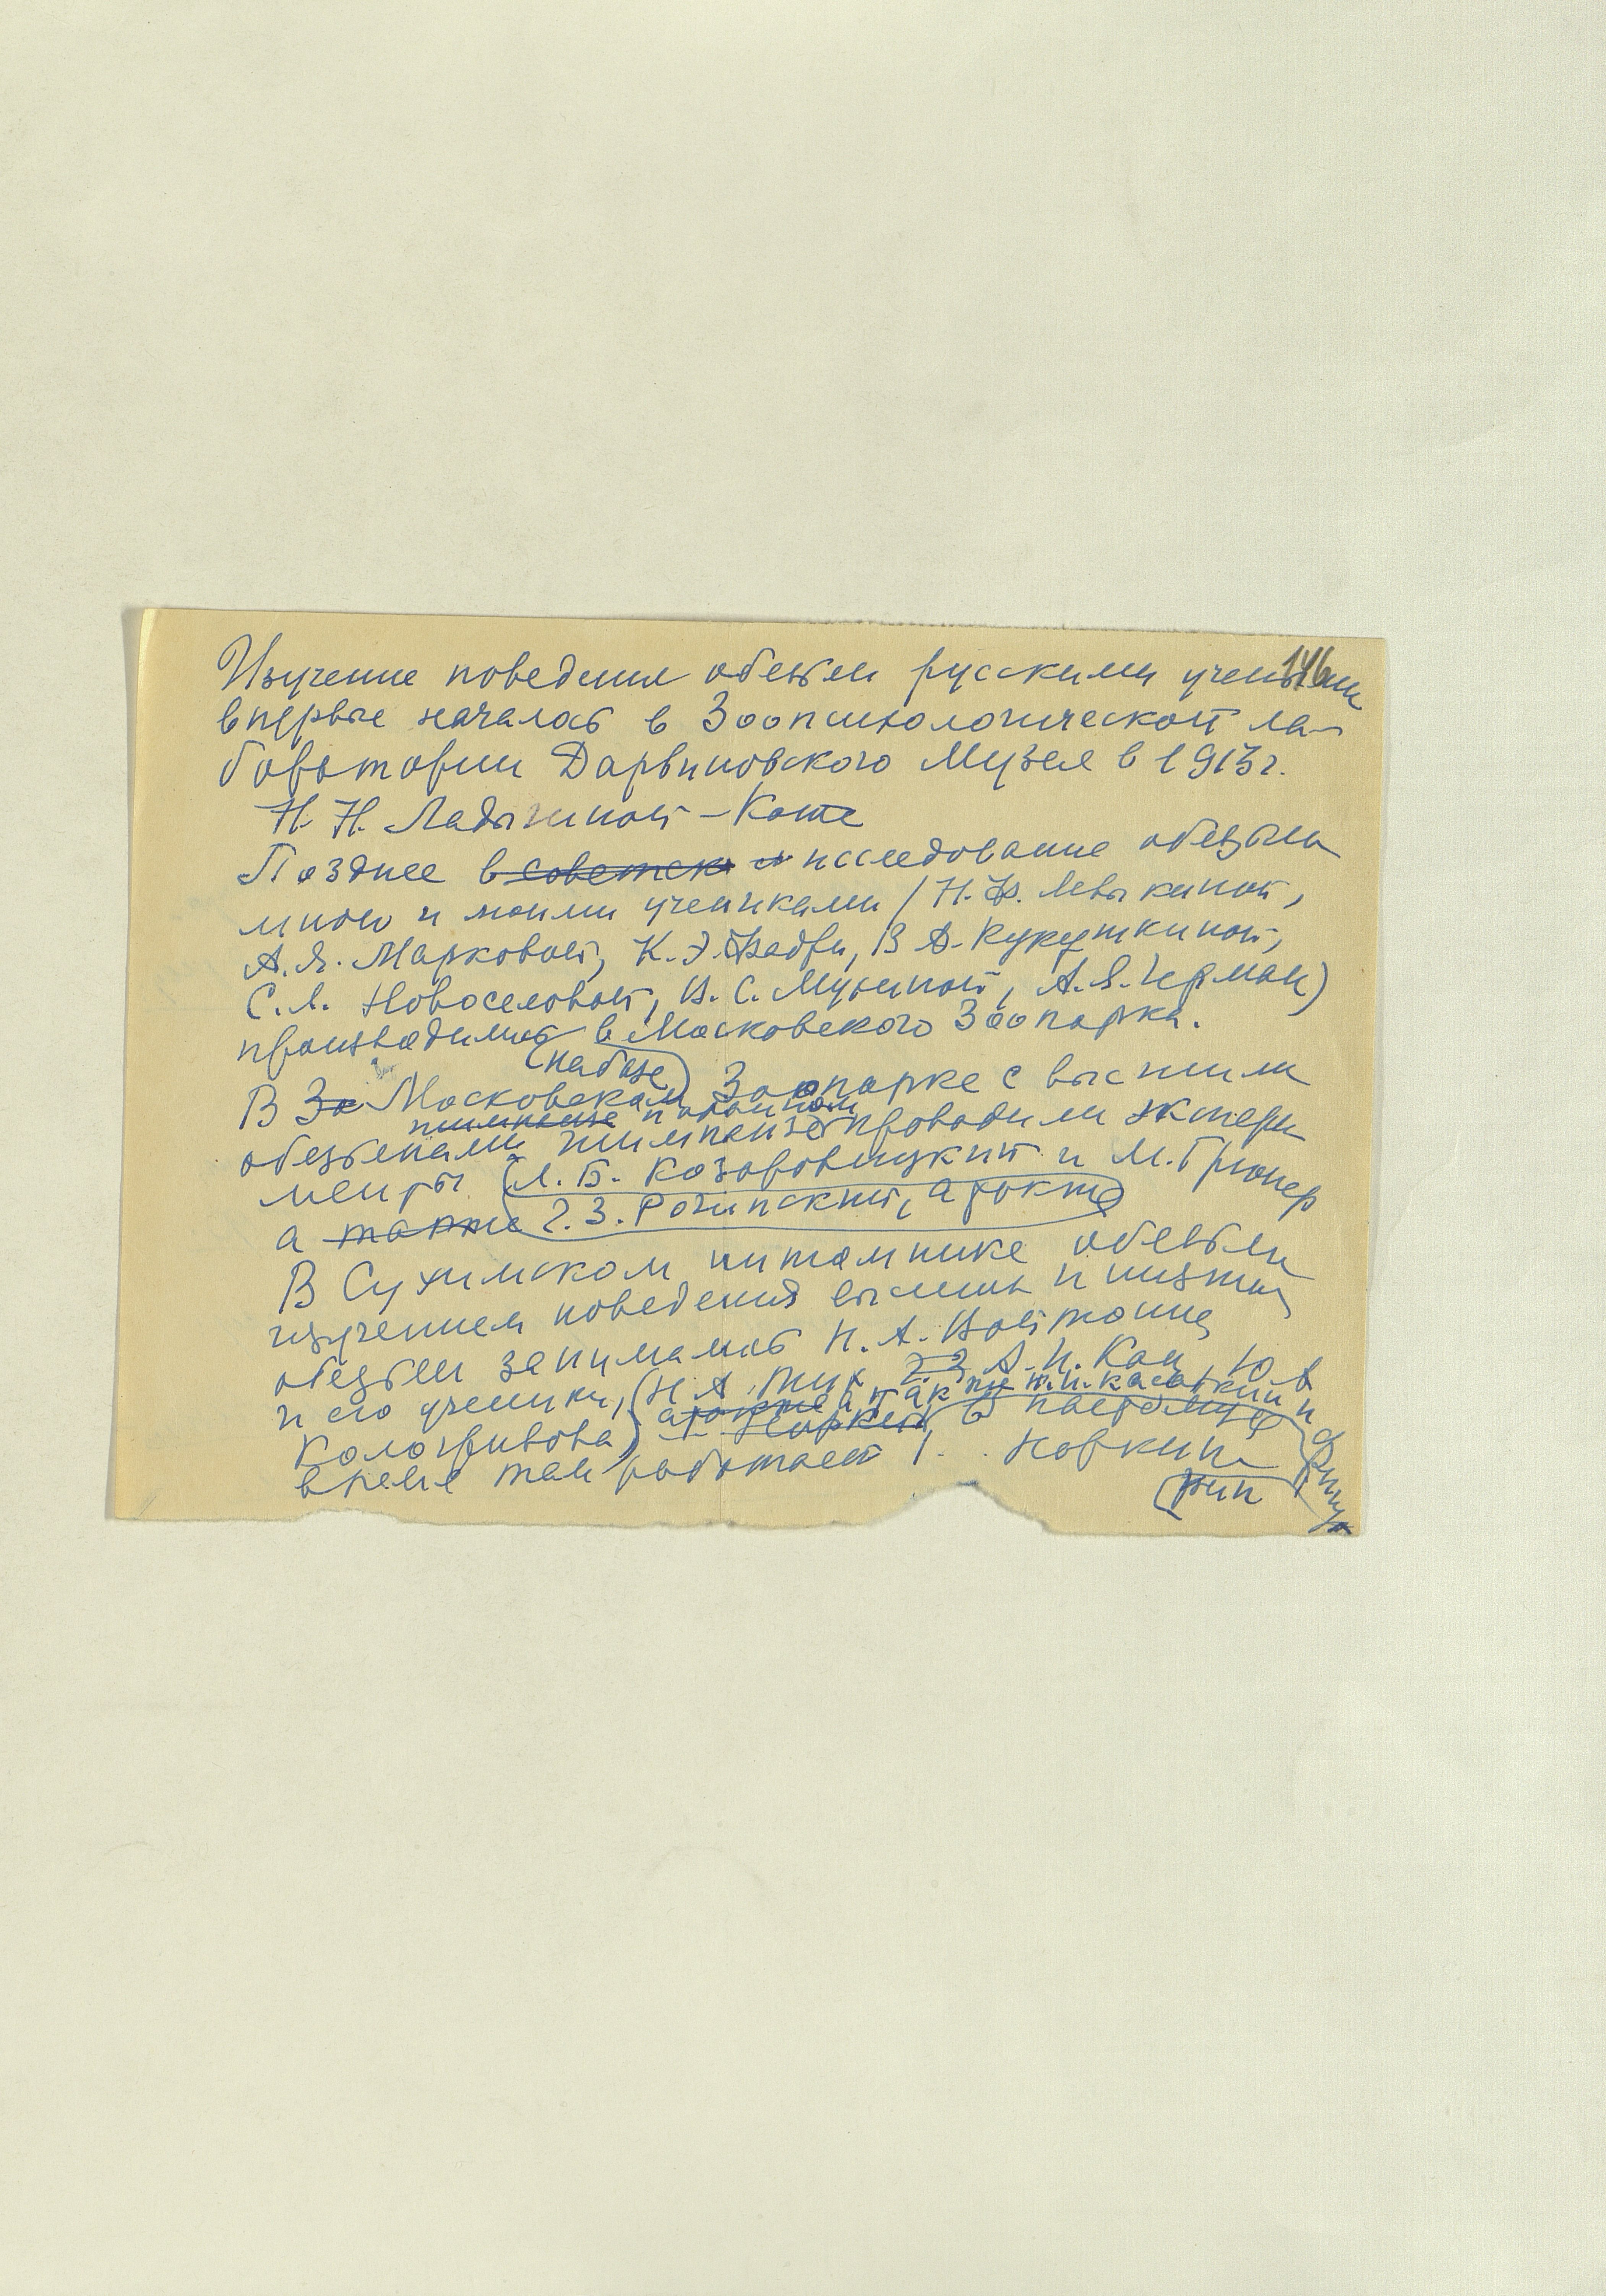 146
Изучение поведения обезьян русскими учеными
впервые началось в Зоопсихологической ла-
боратории Дарвиновского Музея в 1913 г.
Н. Н. Ладыгиной-Котс
Позднее в советск исследование обезьян
мною и моими учениками (Н. Ф. Левыкиной,
А. Я. Марковой, К. Э. Фабри, В. А. Кукушкиной,
С. Л. Новоселовой, И. С. Мушиной, А. Я. Герман)
производилось в Московского Зоопарка.
(на базе)
В Зо Московском Зоопарке с высшими
шимпанзе
обезьянами шимпанзе проводили экспери
менты (Л. Б. Козаровицкий и М. Грюнер
а также Г. З. Рогинский, а также
В Сухумском питомнике обезьян
изучением поведения высших и низших
обезьян занимались Н. А. Войтонис
и его ученики, (Н. А. Тих А. И. Кац, Ю. В
а также а также Н. И. Касаткин и
Кологривова) Норкин, В настоящее
время там работает Г. Норкин